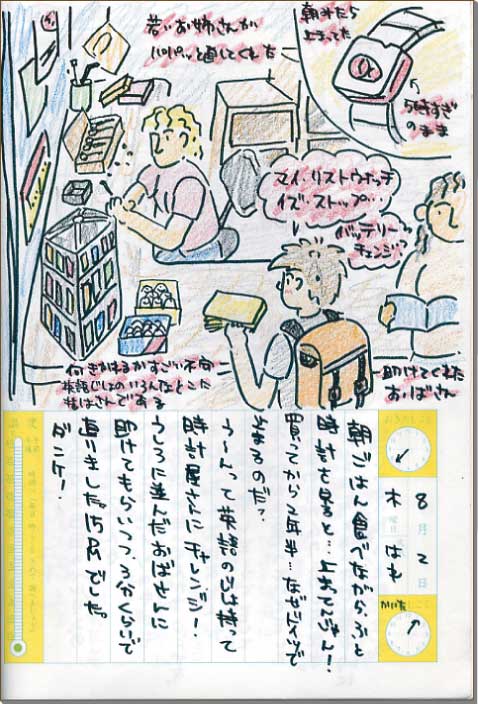 若いお姉さんが
パパッと直してくれた
朝みたら
止まってた
5時すぎ
のまま
マイ・リストウォッチ
イズ・ストップ…
バッテリーっ
チェンジっ
助けてくれた
おばさん
何きかれるかすごい不安
8月2日
木 はれ
かいた
朝ごはん食べながらふと
時計を見ると…止まってんじゃん!
買ってから2年半…なぜドイツで
止まるのだ?
う〜んって英語の 持って
時計屋さんにチャレンジ!
うしろに並んだおばさんに
助けてもらいつつ、3分くらいで
直りました。でした。
ダンケ!